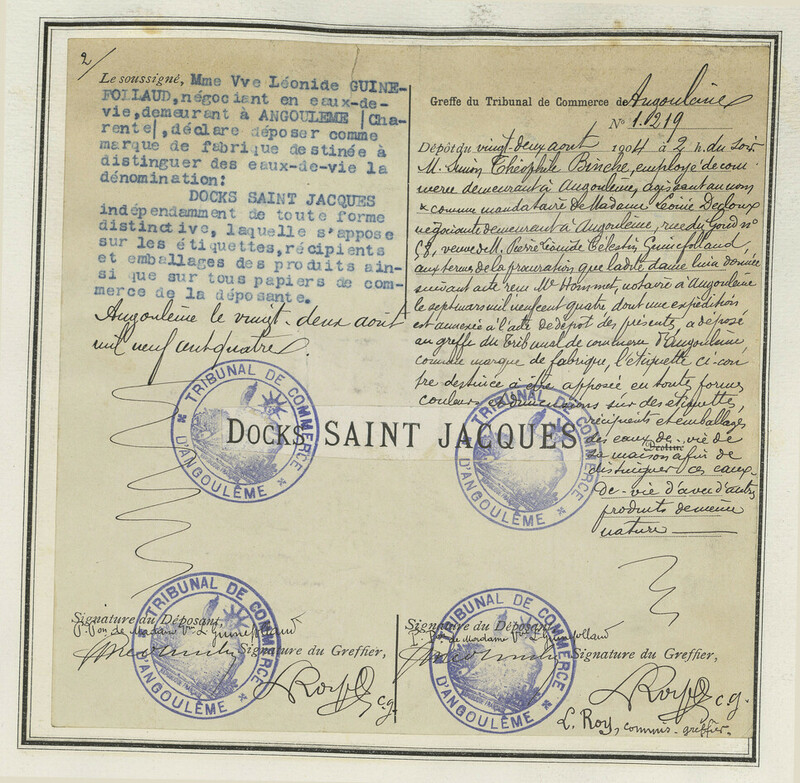 2/
Le soussigné, Mme Vve Léonide GUINE-
FOLLAUD, négociant en eaux-de-
vie, demeurant à ANGOULEME |Cha-
rente|, déclare déposer comme
marque de fabrique destinée à
distinguer des eaux-de-vie la
dénomination:
DOCKS SAINT JACQUES
indépendamment de toute forme
distinctive, laquelle s'appose
sur les étiquettes, récipients
et emballages des produits ain-
si que sur tous papiers de com-
merce de la déposante.
Angoulême le vingt-deux août
mil neuf cent quatre.
Greffe du Tribunal de Commerce de Angoulême
N° 1.219
Dépôt du vingt-deux août 1904 à 2 h. du soir
M. Théophile Binche, employé de com-
merce demeurant à Angoulême, agissant au nom
& comme mandataire de Madame Decloux
négociante demeurant à Angoulême, rue du Gond n°
58, veuve de M. Pierre Léonide Célestin Guinefollaud,
aux termes de la procuration que ladite dame lui a donnée
suivant acte reçu Me notaire à Angoulême
le sept mars mil neuf cent quatre dont une expédition
est annexée à l'acte de dépôt des présentes, a déposé
au greffe du Tribunal de commerce d'Angoulême,
comme marque de fabrique, l'étiquette ci-con-
tre destinée à être apposée en toutes formes,
couleurs et dimensions sur des étiquettes,
récipients et emballages
des eaux-de-vie de
sa maison afin de
distinguer ces eaux-
de-vie d'avec d'autres
produits de même
nature
DOCKS SAINT JACQUES
TRIBUNAL DE COMMERCE D'ANGOULÊME
TRIBUNAL DE COMMERCE D'ANGOULÊME
Signature du Déposant,
P. Pon de Madame Vve L Guinefollaud
Signature du Greffier,
c.g.
TRIBUNAL DE COMMERCE D'ANGOULÊME
Signature du Déposant,
P. Pon de Madame Vve L Guinefollaud
Signature du Greffier,
c.g.
L. Roy, commis-greffier.
TRIBUNAL DE COMMERCE D'ANGOULÊME